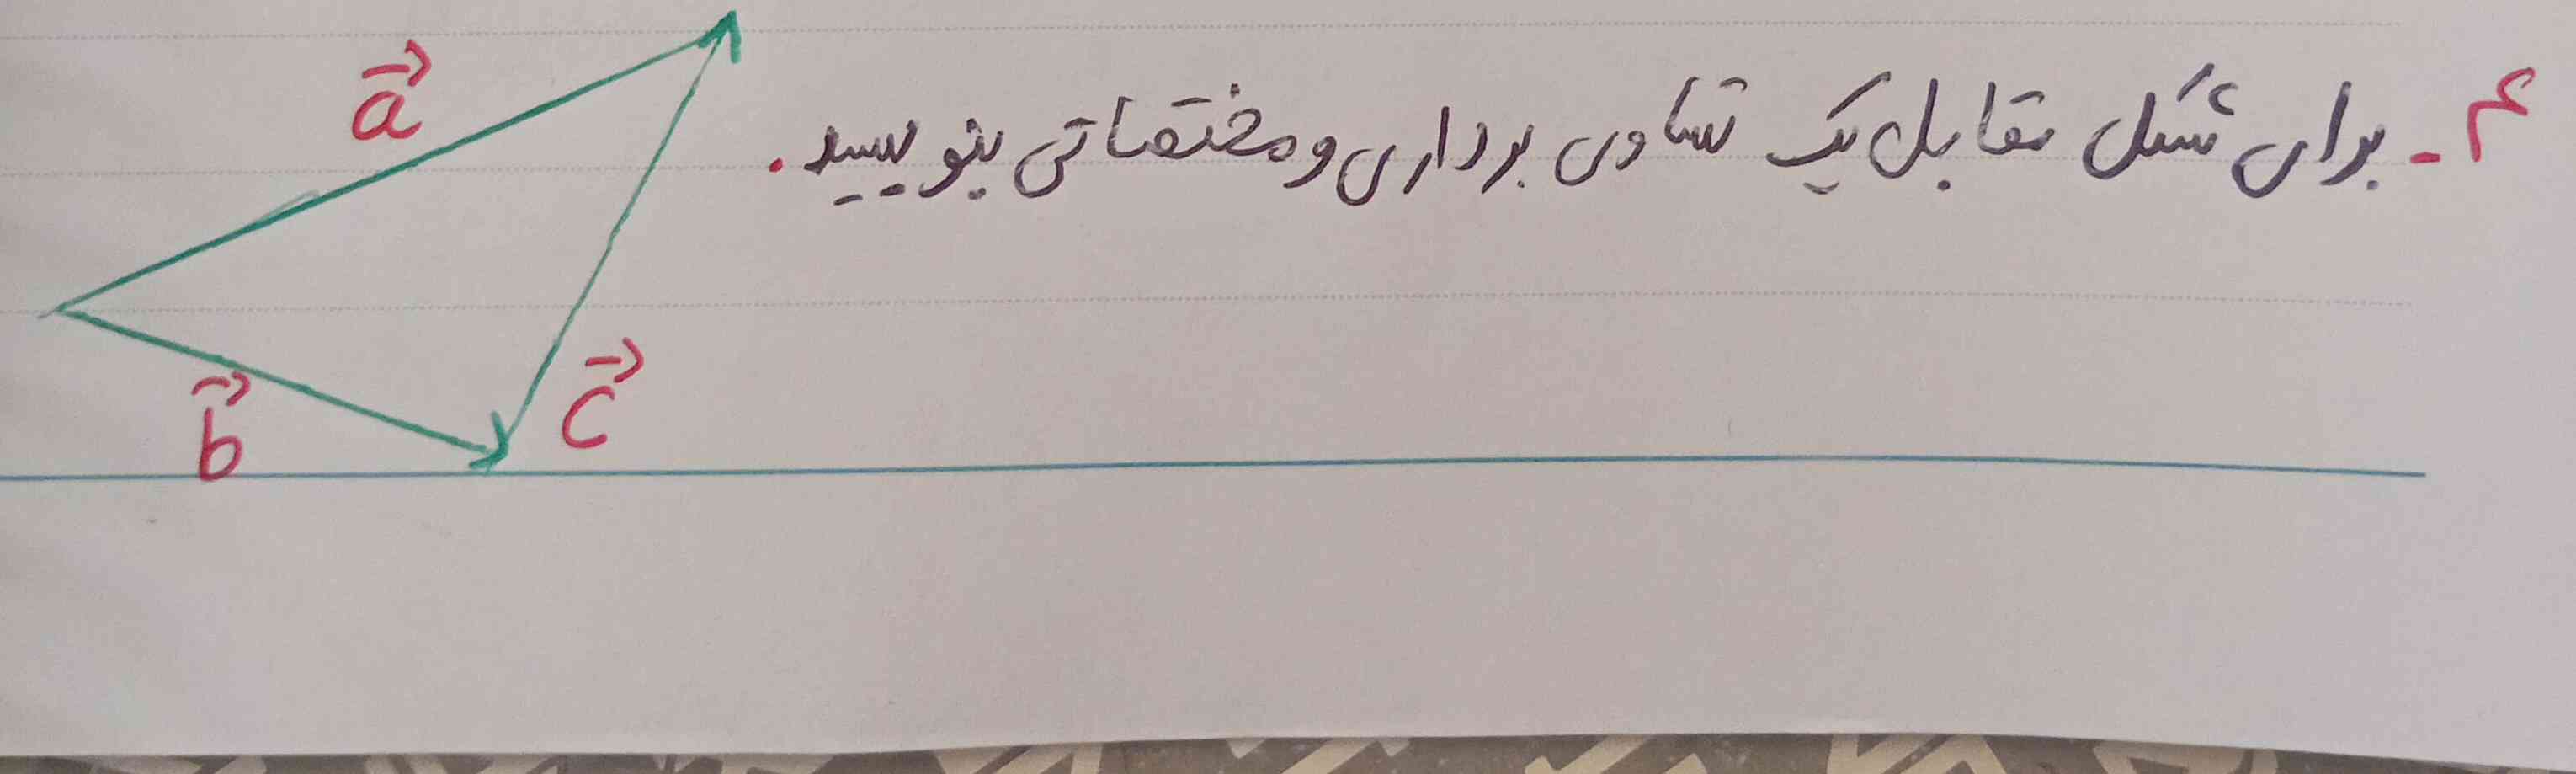 ۴- برای شکل مقابل یک تساوی برداری و مختصاتی بنویسید.
a⃗
b⃗
c⃗